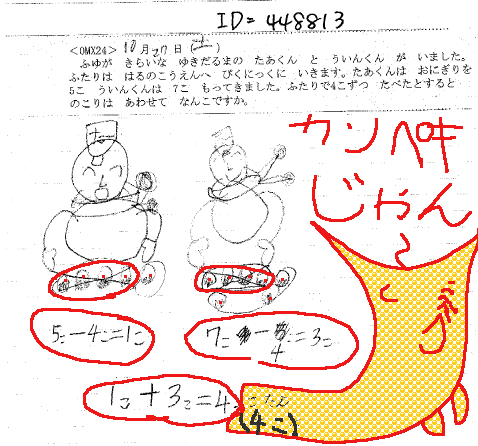 ID=448813
<OMX24> 10月27日(土)
ふゆが きらいな ゆきだるまの たあくん と ういんくん が いました。
ふたりは はるのこうえんへ ぴくにっくに いきます。たあくんは おにぎりを
5こ ういんくんは 7こ もってきました。ふたりで4こずつ たべたとすると
のこりは あわせて なんこですか。
カンペキ
じゃん
5こ-4こ=1こ
7こ-4=3こ
1こ+3こ=4こ
こたえ
(4こ)